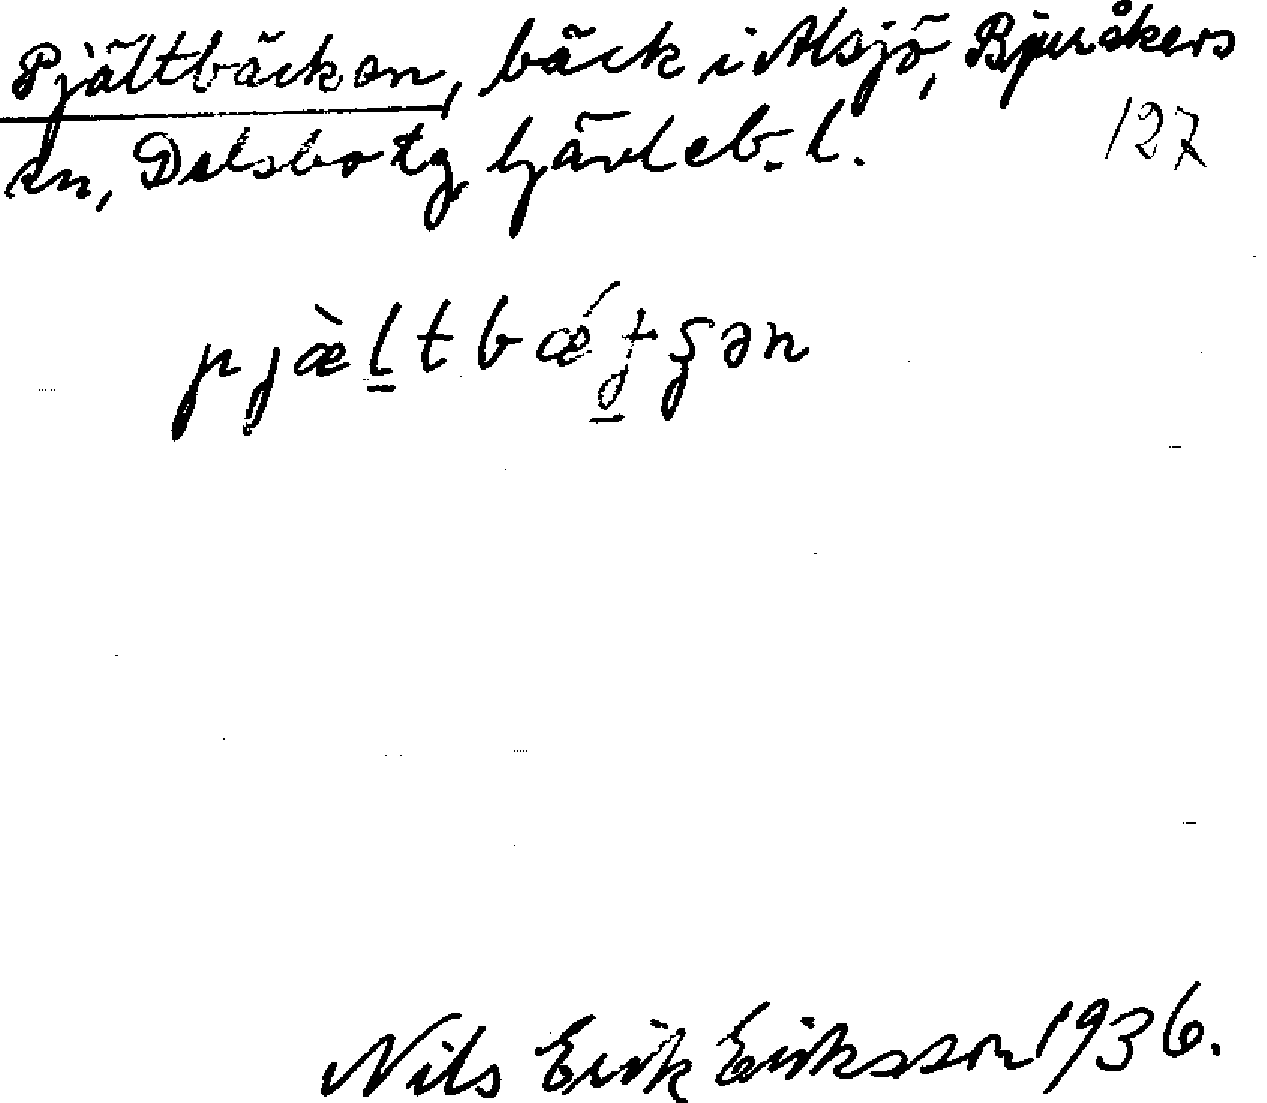 Pjältbäcken, bäck i Alsjö, Bjuråkers
sn, Delsbo tg, Gävleb. l.
127
pjæ̀l̠tbǽt̠ʂən
Nils Erik Eriksson 1936.